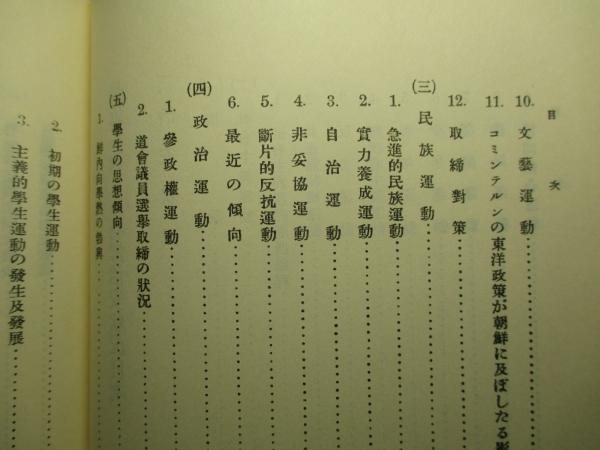 目次
10. 文藝運動
11. コミンテルンの東洋政策が朝鮮に及ぼしたる影
12. 取締對策
(三) 民族運動
1. 急進的民族運動
2. 實力養成運動
3. 自治運動
4. 非妥協運動
5. 斷片的反抗運動
6. 最近の傾向
(四) 政治運動
1. 參政權運動
2. 道會議員選擧取締の狀況
(五) 學生の思想傾向
1. 鮮內向學熱の勃興
2. 初期の學生運動
3. 主義的學生運動の發生及發展